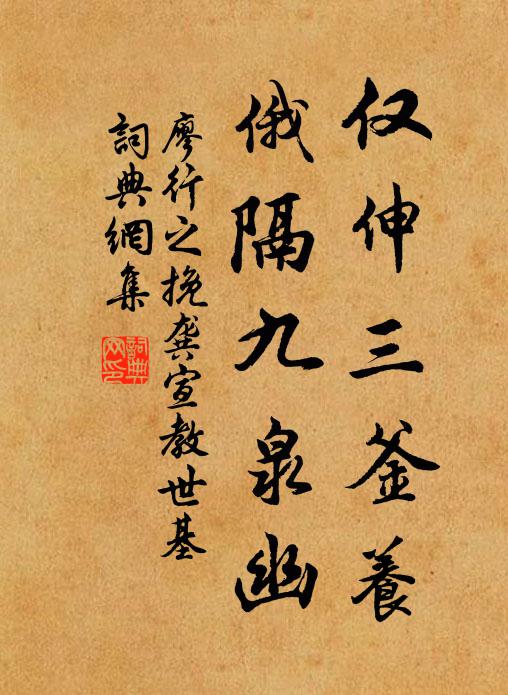 仅伸三釜養
俄隔九泉幽
廖行之挽龔宣教世基
詞典網集
詞典网印